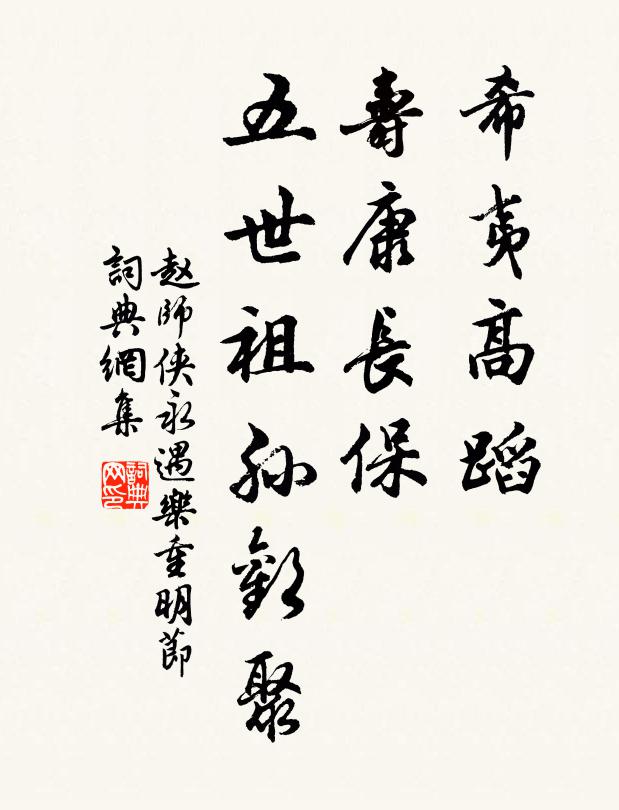 希夷高蹈
壽康長保
五世祖孙歡聚
赵師侠永遇樂重明節
詞典網集
詞典网印